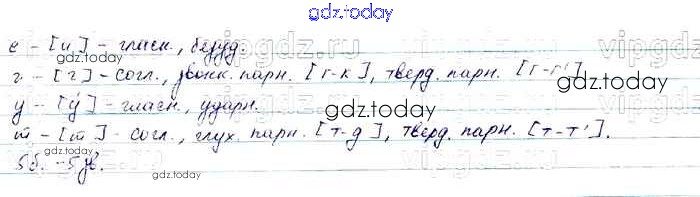 gdz.today
е - [и] - гласн., безуд.
г - [г] - согл., звонк. парн. [г-к], тверд. парн. [г-г'].
gdz.today
у - [у́] - гласн., ударн.
gdz.today
т - [т] - согл., глух. парн. [т-д], тверд. парн. [т-т'].
gdz.today
5 б. - 5 зв.
gdz.today